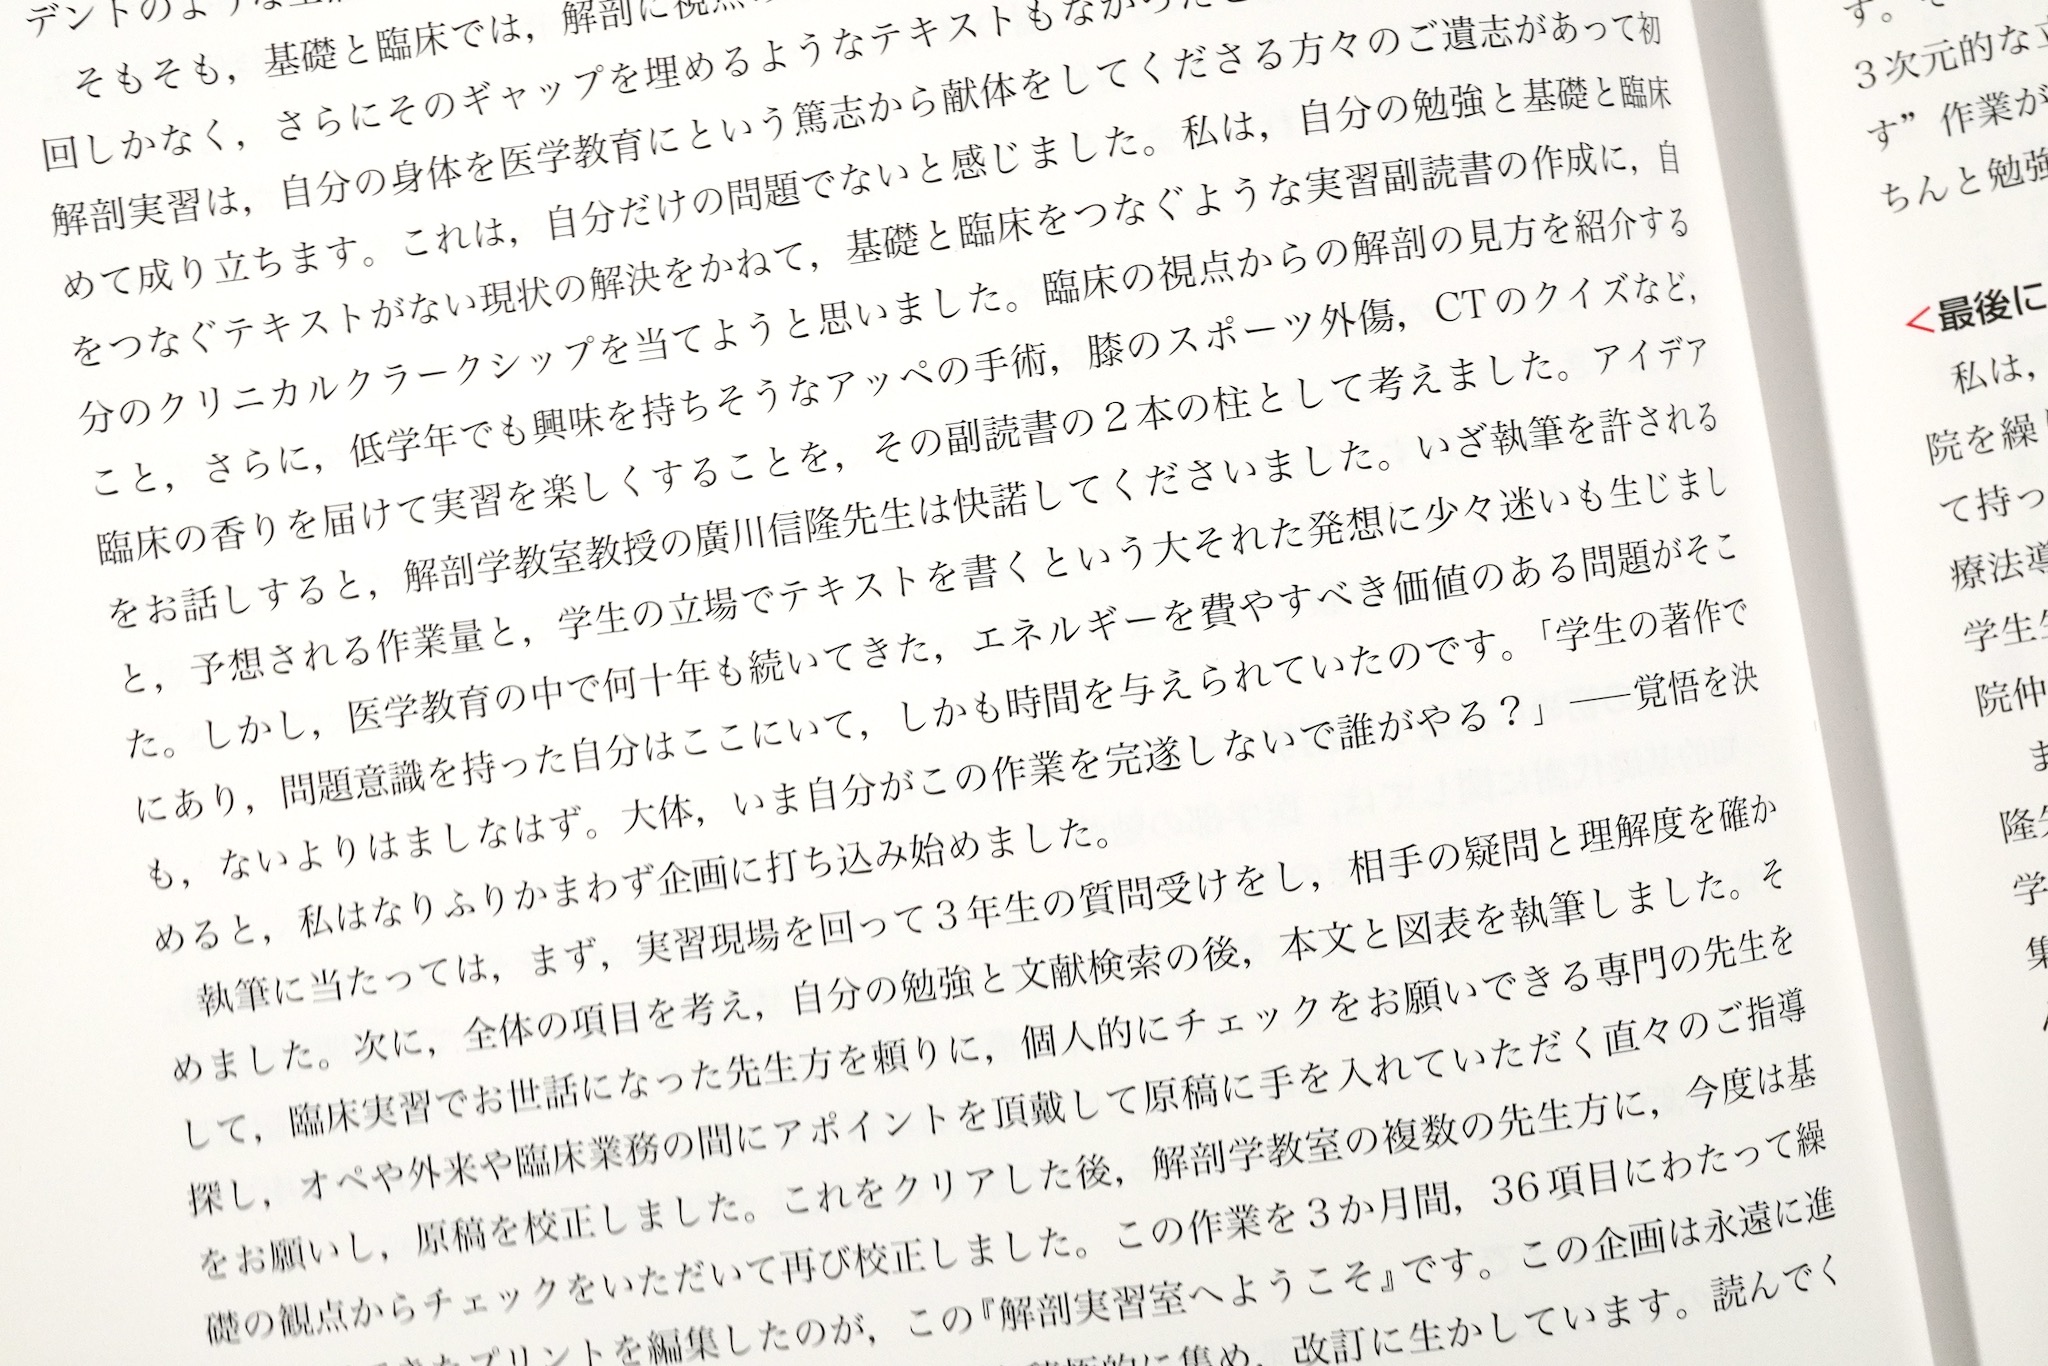 デントのような
そもそも，基礎と臨床では，解剖に視点の
回しかなく，さらにそのギャップを埋めるようなテキストもなかった
解剖実習は，自分の身体を医学教育にという篤志から献体をしてくださる方々のご遺志があって初
めて成り立ちます。これは，自分だけの問題でないと感じました。私は，自分の勉強と基礎と臨床
をつなぐテキストがない現状の解決をかねて，基礎と臨床をつなぐような実習副読書の作成に，自
分のクリニカルクラークシップを当てようと思いました。臨床の視点からの解剖の見方を紹介する
こと，さらに，低学年でも興味を持ちそうなアッペの手術，膝のスポーツ外傷，CTのクイズなど，
臨床の香りを届けて実習を楽しくすることを，その副読書の２本の柱として考えました。アイデア
をお話しすると，解剖学教室教授の廣川信隆先生は快諾してくださいました。いざ執筆を許される
と，予想される作業量と，学生の立場でテキストを書くという大それた発想に少々迷いも生じまし
た。しかし，医学教育の中で何十年も続いてきた，エネルギーを費やすべき価値のある問題がそこ
にあり，問題意識を持った自分はここにいて，しかも時間を与えられていたのです。「学生の著作で
も，ないよりはましなはず。大体，いま自分がこの作業を完遂しないで誰がやる？」──覚悟を決
めると，私はなりふりかまわず企画に打ち込み始めました。
執筆に当たっては，まず，実習現場を回って３年生の質問受けをし，相手の疑問と理解度を確か
めました。次に，全体の項目を考え，自分の勉強と文献検索の後，本文と図表を執筆しました。そ
して，臨床実習でお世話になった先生方を頼りに，個人的にチェックをお願いできる専門の先生を
探し，オペや外来や臨床業務の間にアポイントを頂戴して原稿に手を入れていただく直々のご指導
をお願いし，原稿を校正しました。これをクリアした後，解剖学教室の複数の先生方に，今度は基
礎の観点からチェックをいただいて再び校正しました。この作業を３か月間，36項目にわたって繰
プリントを編集したのが，この『解剖実習室へようこそ』です。この企画は永遠に進
に集め，改訂に生かしています。読んでく
３次元的な
す”作業が
ちんと勉強
＜最後に
私は，
院を繰
て持っ
療法導
学生
院仲
ま
隆
学
集